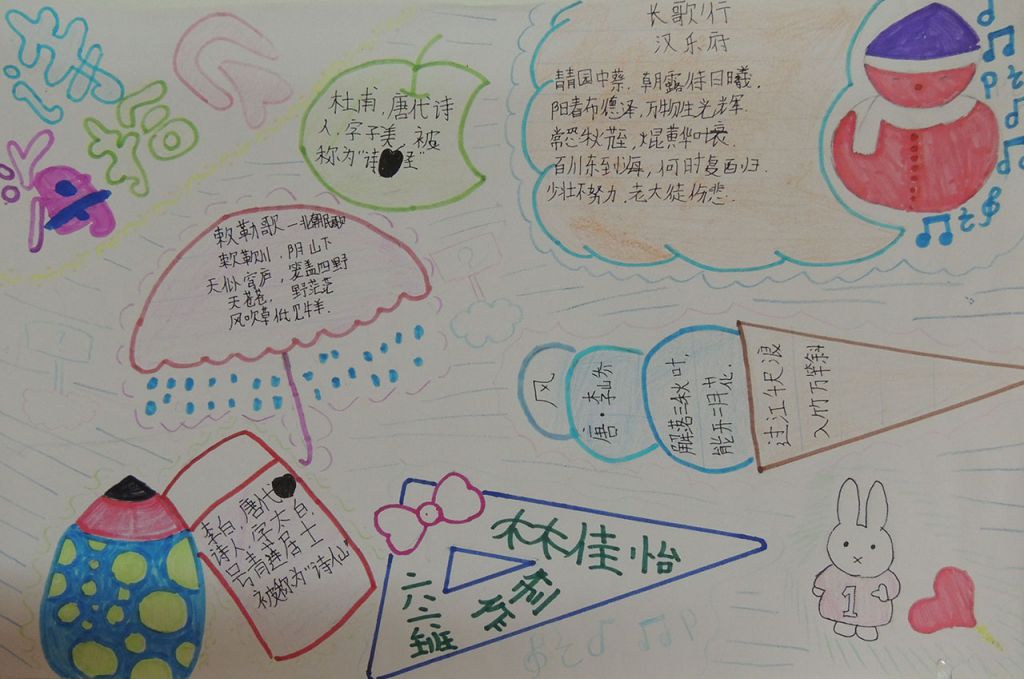 杜甫，唐代诗
人，字子美，被
称为“诗圣”
长歌行
汉乐府
青青园中葵，朝露待日曦．
阳春布德泽，万物生光辉．
常恐秋节至，焜黄华叶衰．
百川东到海，何时复西归．
少壮不努力，老大徒伤悲．
敕勒歌—北朝民歌
敕勒川，阴山下
天似穹庐，笼盖四野
天苍苍，野茫茫
风吹草低见牛羊．
风
唐·李峤
解落三秋叶，
能开二月花．
过江千尺浪
入竹万竿斜
李白，唐代
诗人，字太白，
号青莲居士
被称为“诗仙”
林佳怡
六二班
1